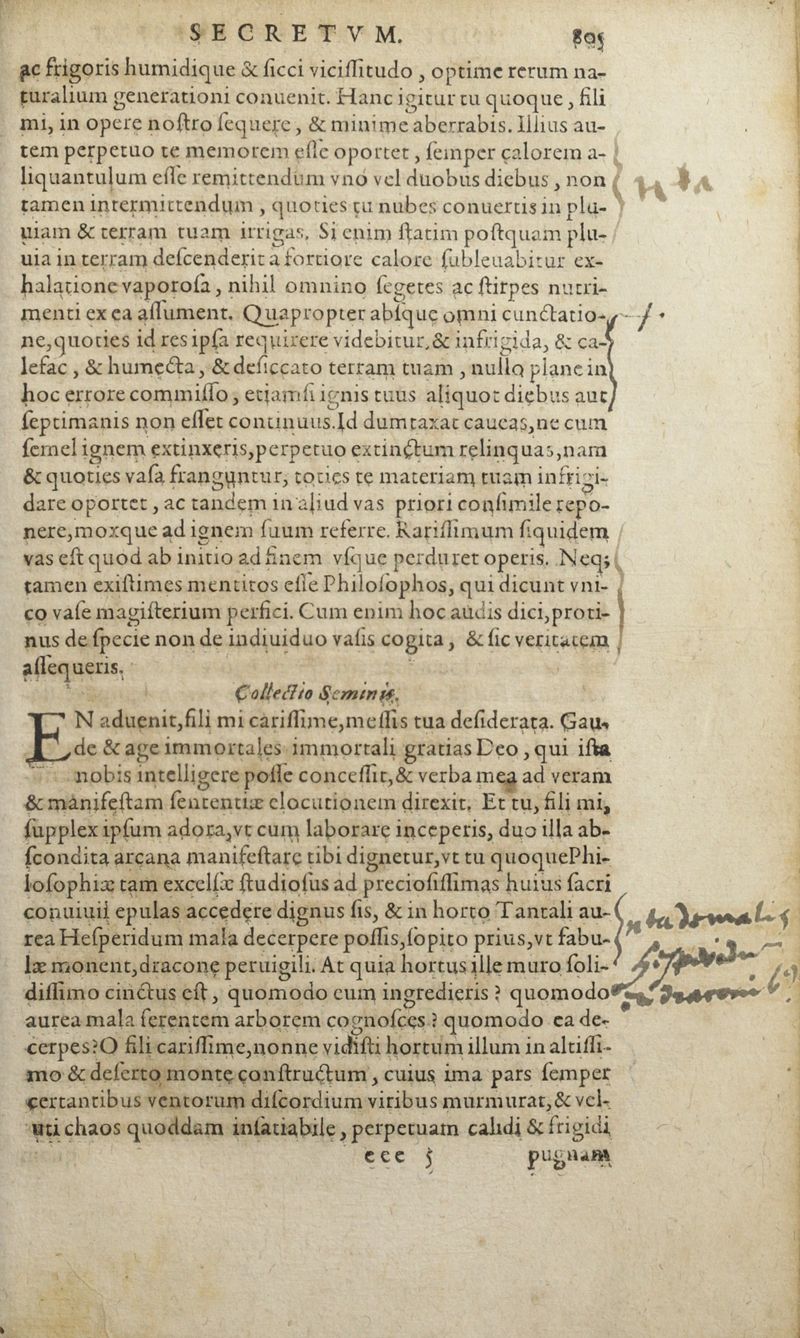 SECRETVM. 805
ac frigoris humidique & ſicci viciſſitudo, optime rerum na-
turalium generationi conuenit. Hanc igitur tu quoque, fili
mi, in opere noſtro ſequere, & minime aberrabis. Illius au-
tem perpetuo te memorem eſſe oportet, ſemper calorem a-
liquantulum eſſe remittendum vno vel duobus diebus, non
tamen intermittendum, quoties tu nubes conuertis in plu-
uiam & terram tuam irrigas. Si enim ſtatim poſtquam plu-
uia in terram deſcenderit a fortiore calore ſubleuabitur ex-
halatione vaporoſa, nihil omnino ſegetes ac ſtirpes nutri-
menti ex ea aſſument. Quapropter abſque omni cunctatio-
ne,quoties id res ipſa requirere videbitur,& infrigida, & ca-
lefac, & humecta, & deſiccato terram tuam, nullo plane in
hoc errore commiſſo, etiamſi ignis tuus aliquot diebus aut
ſeptimanis non eſſet continuus.Id dumtaxat caueas,ne cum
ſemel ignem extinxeris,perpetuo extinctum relinquas,nam
& quoties vaſa franguntur, toties te materiam tuam infrigi-
dare oportet, ac tandem in aliud vas priori conſimile repo-
nere,moxque ad ignem ſuum referre. Rariſſimum ſiquidem
vas eſt quod ab initio ad finem vſque perduret operis. Neq;
tamen exiſtimes mentitos eſſe Philoſophos, qui dicunt vni-
co vaſe magiſterium perfici. Cum enim hoc audis dici,proti-
nus de ſpecie non de indiuiduo vaſis cogita, & ſic veritatem
aſſequeris.
Collectio Seminis.
EN aduenit,fili mi cariſſime,meſſis tua deſiderata. Gau-
de & age immortales immortali gratias Deo, qui iſta
nobis intelligere poſſe conceſſit,& verba mea ad veram
& manifeſtam ſententiæ elocutionem direxit. Et tu, fili mi,
ſupplex ipſum adora,vt cum laborare inceperis, duo illa ab-
ſcondita arcana manifeſtare tibi dignetur,vt tu quoquePhi-
loſophiæ tam excelſæ ſtudioſus ad precioſiſſimas huius ſacri
conuiuii epulas accedere dignus ſis, & in horto Tantali au-
rea Heſperidum mala decerpere poſſis,ſopito prius,vt fabu-
læ monent,dracone peruigili. At quia hortus ille muro ſoli-
diſſimo cinctus eſt, quomodo eum ingredieris ? quomodo
aurea mala ferentem arborem cognoſces ? quomodo ea de-
cerpes?O fili cariſſime,nonne vidiſti hortum illum in altiſſi-
mo & deſerto monte conſtructum, cuius ima pars ſemper
certantibus ventorum diſcordium viribus murmurat,& vel-
uti chaos quoddam inſatiabile, perpetuam calidi & frigidi
eee 5 pugnam